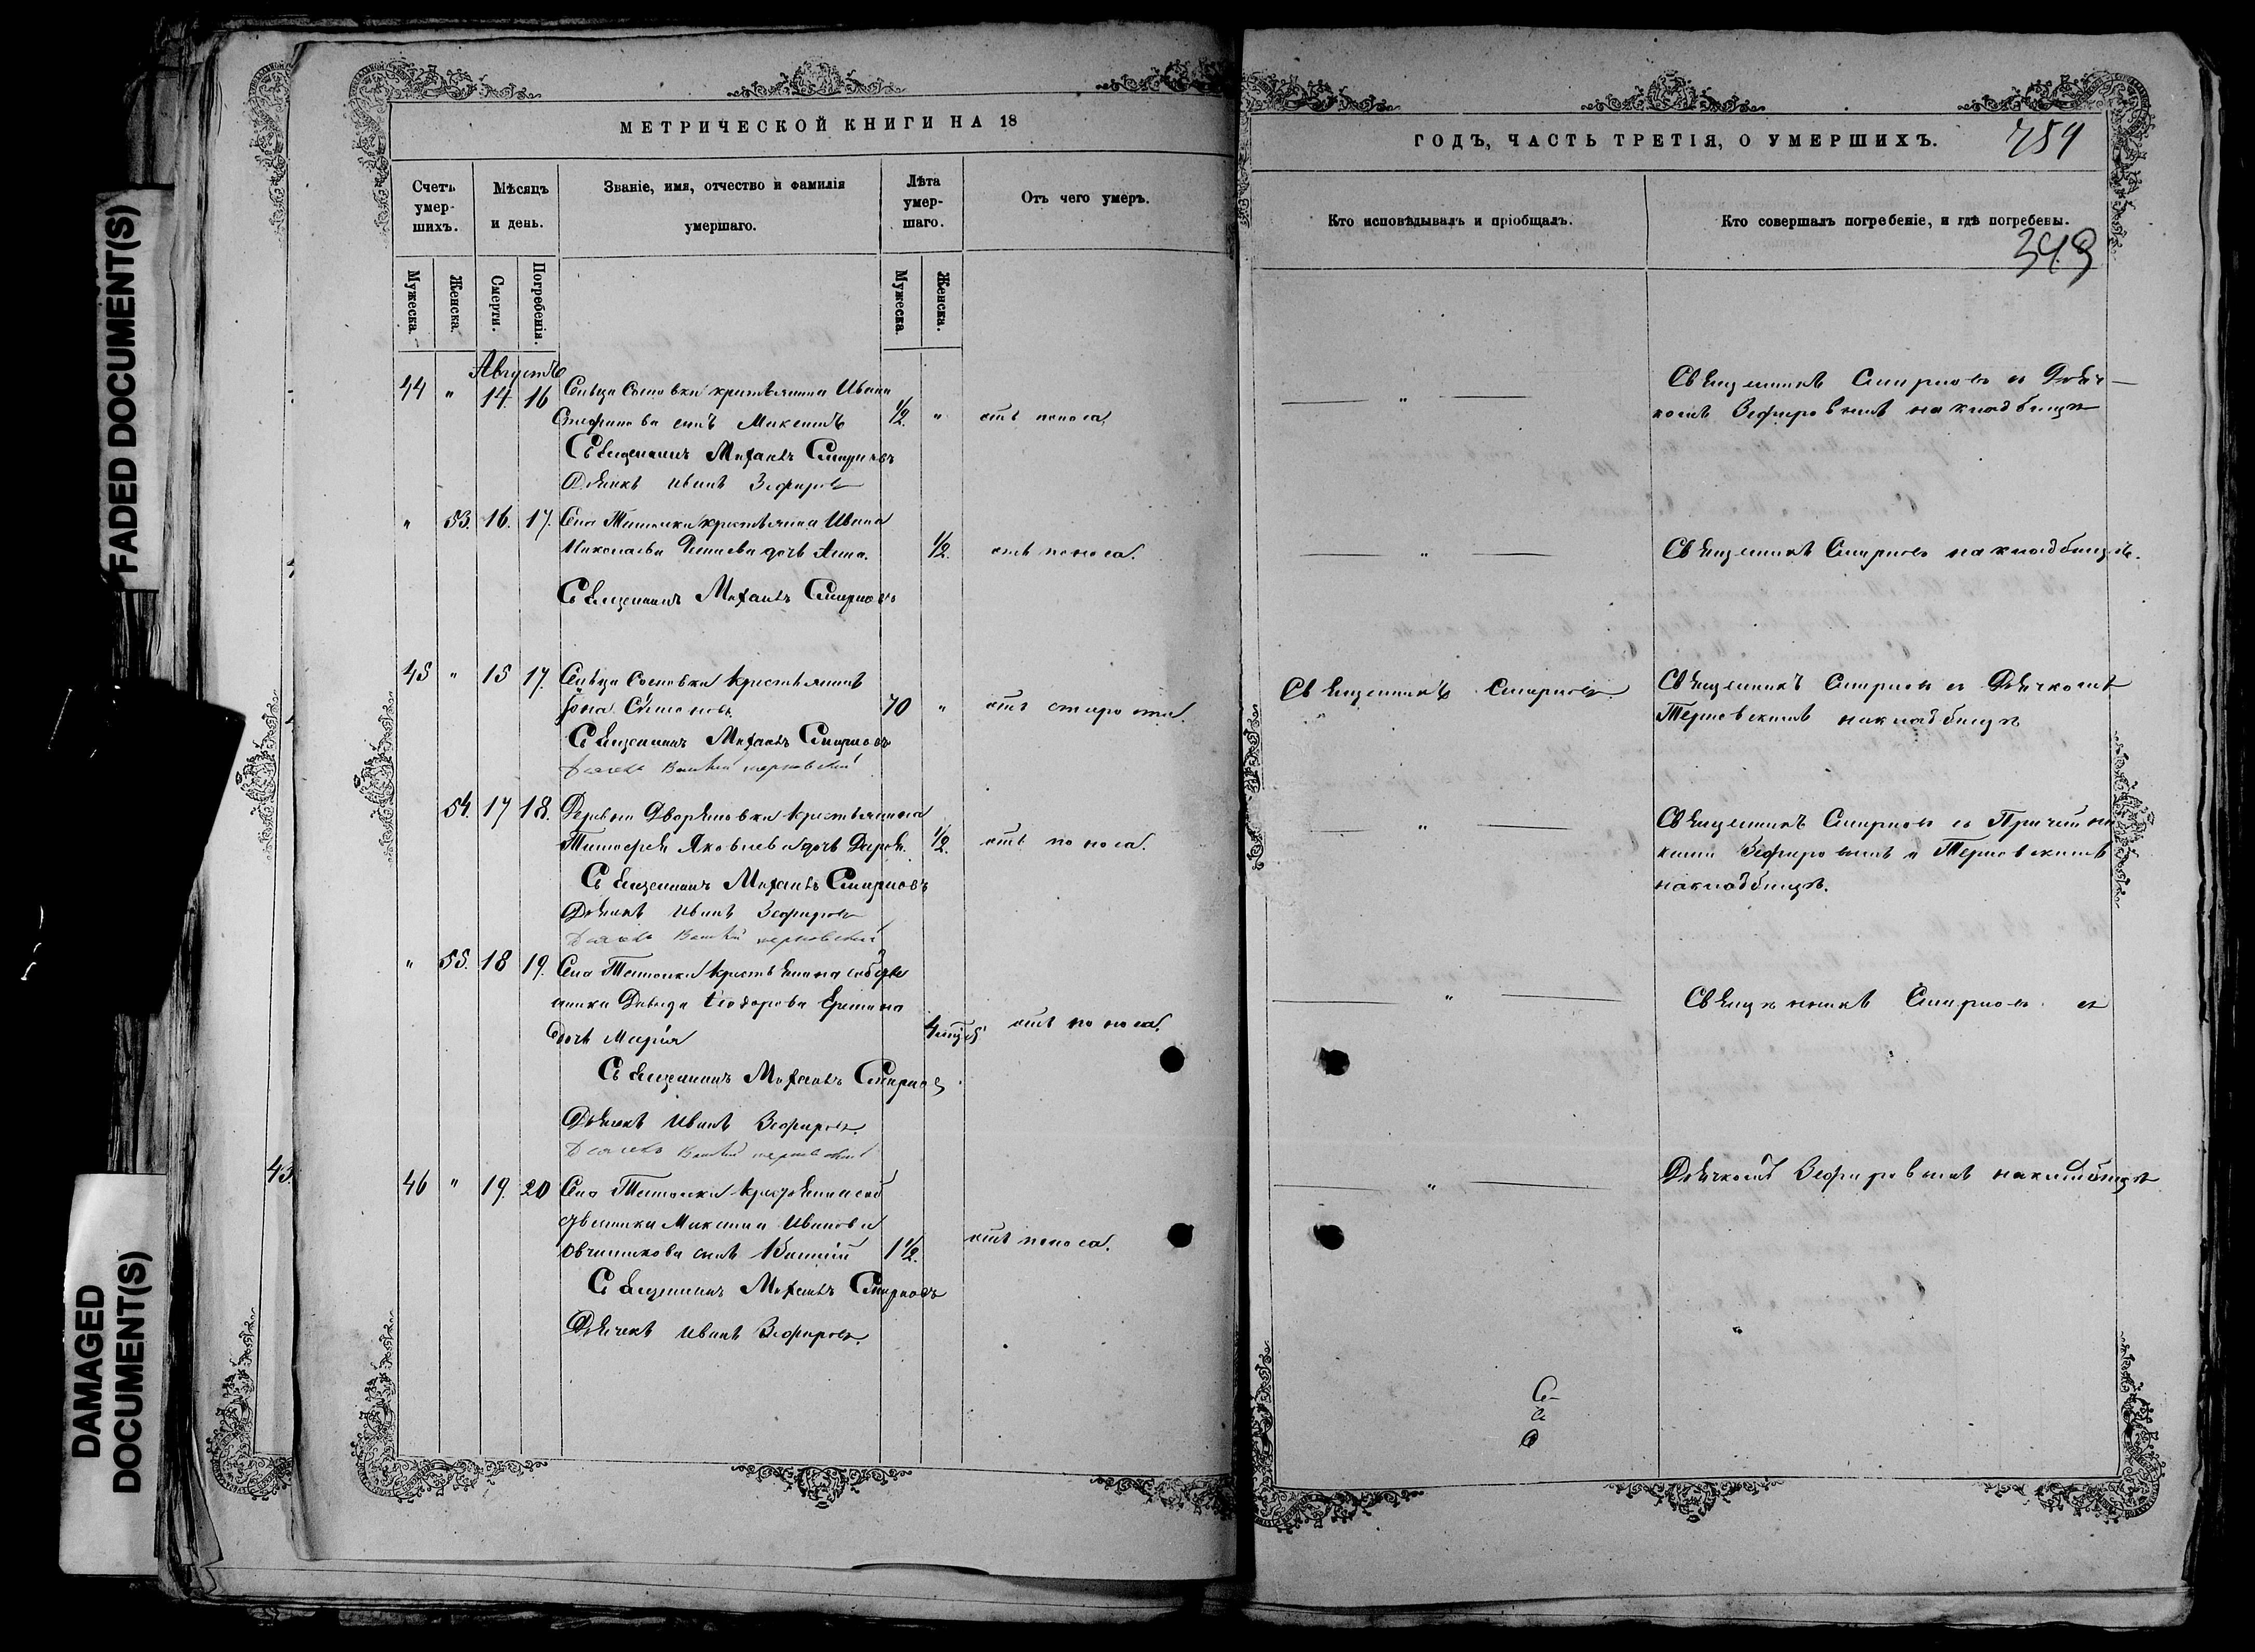 FADED DOCUMENT(S)
DAMAGED
DOCUMENT(S)
МЕТРИЧЕСКОЙ КНИГИ НА 18
Счетъ умер- шихъ.
Мѣсяцъ и день.
Званіе, имя, отчество и фамилія умершаго.
Лѣта умер- шаго.
Отъ чего умеръ.
Мужеска.
Женска.
Смерти.
Погребенія.
Мужеска.
Женска.
Августъ
44 " 14. 16 Сельца Сосновки крестьянина Ивана
Стефанова сынъ Максимъ 1/2. " отъ поноса.
Священникъ Михаилъ Смирновъ
Дьячекъ Иванъ Зефировъ
" 53. 16. 17. Села крестьянина Ивана
Николаева дочь Анна. 1/2. отъ поноса.
Священникъ Михаилъ Смирновъ
45 " 15 17. Сельца Сосновки крестьянинъ
Іона Симоновъ. 70 " отъ старости.
Священникъ Михаилъ Смирновъ
Дьячекъ Терновский
54. 17 18. Деревни Дворяновки крестьянина
Тимофея Яковлева дочь Дарья. 1/2. отъ поноса.
Священникъ Михаилъ Смирновъ
Дьячекъ Иванъ Зефировъ
Дьячекъ Терновский
" 55. 18 19. Села крестьянина собстве
нника Давида Ѳеодорова
дочь Марія отъ поноса.
Священникъ Михаилъ Смирновъ
Дьячекъ Иванъ Зефировъ.
Дьячекъ Терновский
43.
46 " 19. 20 Села крестьянина соб
ственника Максима Иванова
Овчинникова сынъ 1 1/2. отъ поноса.
Священникъ Михаилъ Смирновъ
Дьячекъ Иванъ Зефировъ.
ГОДЪ, ЧАСТЬ ТРЕТІЯ, О УМЕРШИХЪ.
Кто исповѣдывалъ и пріобщалъ.
Кто совершалъ погребеніе, и гдѣ погребены.
349
" Священникъ Смирновъ съ Дьяч-
комъ Зефировымъ на кладбищѣ
" Священникъ Смирновъ на кладбищѣ.
Священникъ Смирновъ
Священникъ Смирновъ съ Дьячкомъ
Терновскимъ на кладбищѣ
" Священникъ Смирновъ съ Причетни
ками Зефировымъ и Терновскимъ
на кладбищѣ.
" Священникъ Смирновъ съ
" Дьячкомъ Зефировымъ на кладбищѣ